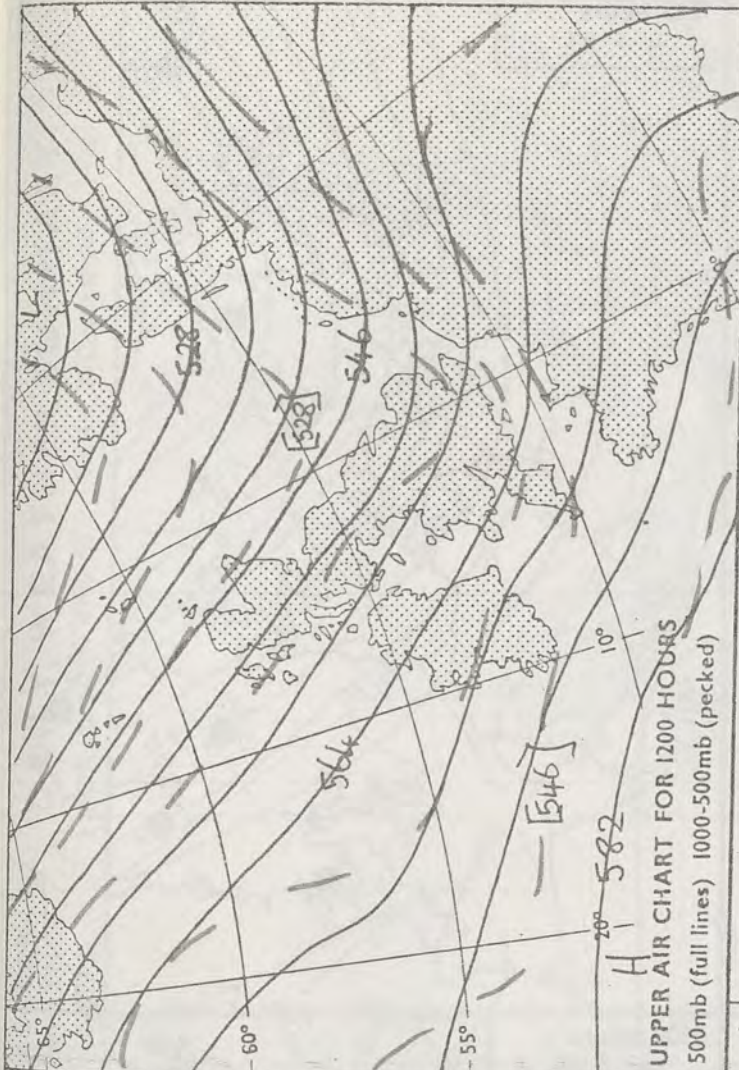 L
X
528
[528]
546
564
[546]
582
H
65°
60°
55°
20°
10°
0°
UPPER AIR CHART FOR 1200 HOURS
500mb (full lines) 1000-500mb (pecked)